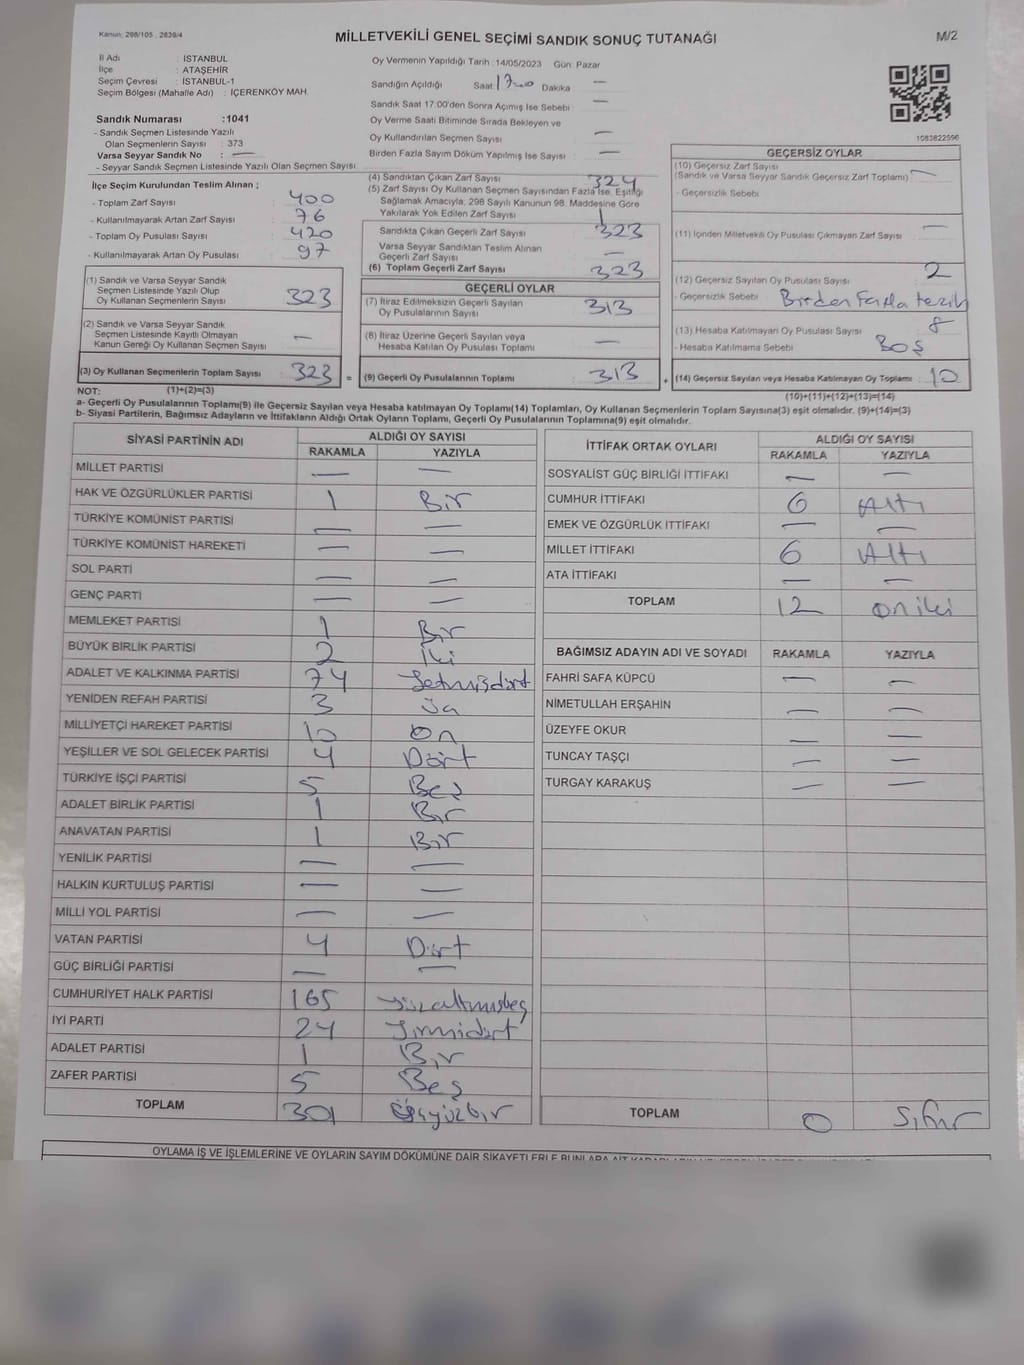 Kanun: 298/105 , 2839/4
MİLLETVEKİLİ GENEL SEÇİMİ SANDIK SONUÇ TUTANAĞI
M/2
İl Adı : İSTANBUL
İlçe : ATAŞEHİR
Seçim Çevresi : İSTANBUL-1
Seçim Bölgesi (Mahalle Adı) : İÇERENKÖY MAH.
Sandık Numarası :1041
- Sandık Seçmen Listesinde Yazılı
Olan Seçmenlerin Sayısı : 373
Varsa Seyyar Sandık No : —
- Seyyar Sandık Seçmen Listesinde Yazılı Olan Seçmen Sayısı:
Oy Vermenin Yapıldığı Tarih :14/05/2023 Gün: Pazar
Sandığın Açıldığı Saat 17:00 Dakika —
Sandık Saat 17:00'den Sonra Açımış İse Sebebi : —
Oy Verme Saati Bitiminde Sırada Bekleyen ve
Oy Kullandırılan Seçmen Sayısı : —
Birden Fazla Sayım Döküm Yapılmış İse Sayısı : —
1083822596
İlçe Seçim Kurulundan Teslim Alınan ;
- Toplam Zarf Sayısı : 400
- Kullanılmayarak Artan Zarf Sayısı : 76
- Toplam Oy Pusulası Sayısı : 420
- Kullanılmayarak Artan Oy Pusulası : 97
(1) Sandık ve Varsa Seyyar Sandık
Seçmen Listesinde Yazılı Olup
Oy Kullanan Seçmenlerin Sayısı : 323
(2) Sandık ve Varsa Seyyar Sandık
Seçmen Listesinde Kayıtlı Olmayan
Kanun Gereği Oy Kullanan Seçmen Sayısı : —
(3) Oy Kullanan Seçmenlerin Toplam Sayısı : 323 =
(4) Sandıktan Çıkan Zarf Sayısı : 324
(5) Zarf Sayısı Oy Kullanan Seçmen Sayısından Fazla İse, Eşitliği
Sağlamak Amacıyla, 298 Sayılı Kanunun 98. Maddesine Göre
Yakılarak Yok Edilen Zarf Sayısı : 1
Sandıkta Çıkan Geçerli Zarf Sayısı : 323
Varsa Seyyar Sandıktan Teslim Alınan
Geçerli Zarf Sayısı : —
(6) Toplam Geçerli Zarf Sayısı : 323
GEÇERLİ OYLAR
(7) İtiraz Edilmeksizin Geçerli Sayılan
Oy Pusulalarının Sayısı : 313
(8) İtiraz Üzerine Geçerli Sayılan veya
Hesaba Katılan Oy Pusulası Toplamı : —
(9) Geçerli Oy Pusulalarının Toplamı : 313 +
GEÇERSİZ OYLAR
(10) Geçersiz Zarf Sayısı
(Sandık ve Varsa Seyyar Sandık Geçersiz Zarf Toplamı) : —
- Geçersizlik Sebebi :
(11) İçinden Milletvekili Oy Pusulası Çıkmayan Zarf Sayısı : —
(12) Geçersiz Sayılan Oy Pusulası Sayısı : 2
- Geçersizlik Sebebi : Birden Fazla tercih
(13) Hesaba Katılmayan Oy Pusulası Sayısı : 8
- Hesaba Katılmama Sebebi : BOŞ
(14) Geçersiz Sayılan veya Hesaba Katılmayan Oy Toplamı : 10
NOT: (1)+(2)=(3)
(10)+(11)+(12)+(13)=(14)
a- Geçerli Oy Pusulalarının Toplamı(9) ile Geçersiz Sayılan veya Hesaba katılmayan Oy Toplamı(14) Toplamları, Oy Kullanan Seçmenlerin Toplam Sayısına(3) eşit olmalıdır. (9)+(14)=(3)
b- Siyasi Partilerin, Bağımsız Adayların ve İttifakların Aldığı Ortak Oyların Toplamı, Geçerli Oy Pusulalarının Toplamına(9) eşit olmalıdır.
SİYASİ PARTİNİN ADI ALDIĞI OY SAYISI
RAKAMLA YAZIYLA
MİLLET PARTİSİ — —
HAK VE ÖZGÜRLÜKLER PARTİSİ 1 Bir
TÜRKİYE KOMÜNİST PARTİSİ — —
TÜRKİYE KOMÜNİST HAREKETİ — —
SOL PARTİ — —
GENÇ PARTİ — —
MEMLEKET PARTİSİ 1 Bir
BÜYÜK BİRLİK PARTİSİ 2 İki
ADALET VE KALKINMA PARTİSİ 74 Yetmişdört
YENİDEN REFAH PARTİSİ 3 Üç
MİLLİYETÇİ HAREKET PARTİSİ 10 On
YEŞİLLER VE SOL GELECEK PARTİSİ 4 Dört
TÜRKİYE İŞÇİ PARTİSİ 5 Beş
ADALET BİRLİK PARTİSİ 1 Bir
ANAVATAN PARTİSİ 1 Bir
YENİLİK PARTİSİ — —
HALKIN KURTULUŞ PARTİSİ — —
MİLLİ YOL PARTİSİ — —
VATAN PARTİSİ 4 Dört
GÜÇ BİRLİĞİ PARTİSİ — —
CUMHURİYET HALK PARTİSİ 165 Yüzaltmışbeş
İYİ PARTİ 24 Yirmidört
ADALET PARTİSİ 1 Bir
ZAFER PARTİSİ 5 Beş
TOPLAM 301 Üçyüzbir
İTTİFAK ORTAK OYLARI ALDIĞI OY SAYISI
RAKAMLA YAZIYLA
SOSYALİST GÜÇ BİRLİĞİ İTTİFAKI — —
CUMHUR İTTİFAKI 6 Altı
EMEK VE ÖZGÜRLÜK İTTİFAKI — —
MİLLET İTTİFAKI 6 Altı
ATA İTTİFAKI — —
TOPLAM 12 oniki
BAĞIMSIZ ADAYIN ADI VE SOYADI RAKAMLA YAZIYLA
FAHRİ SAFA KÜPCÜ — —
NİMETULLAH ERŞAHİN — —
ÜZEYFE OKUR — —
TUNCAY TAŞÇI — —
TURGAY KARAKUŞ — —
TOPLAM 0 Sıfır
OYLAMA İŞ VE İŞLEMLERİNE VE OYLARIN SAYIM DÖKÜMÜNE DAİR ŞİKAYETLERLE BUNLARA AİT